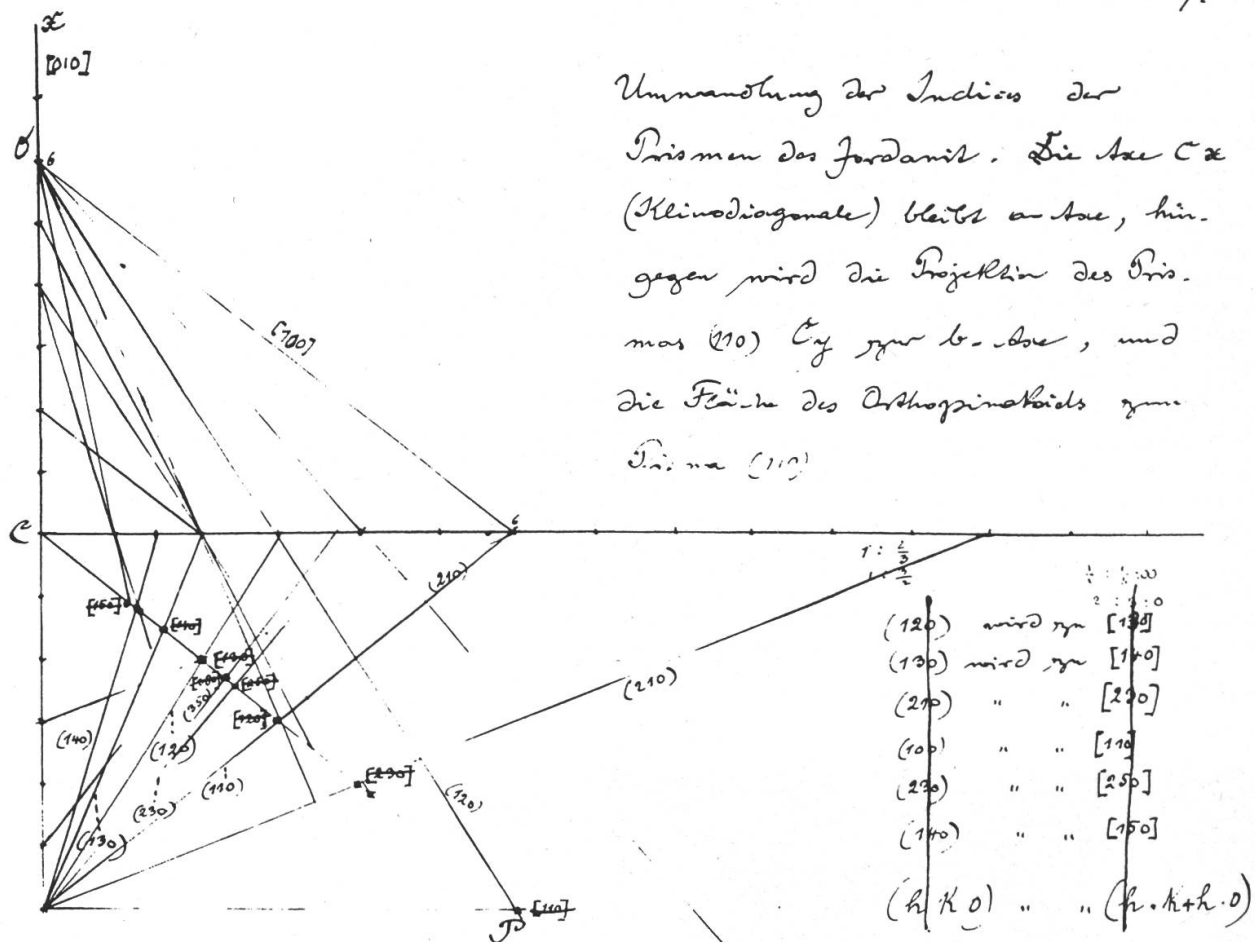 x
[010]
6
Umwandlung der Indices der
Prismen des Jordanit. Die Axe C x
(Klinodiagonale) bleibt a-Axe, hin-
gegen wird die Projektion des Pris-
mas (110) Cy zur b-Axe, und
die Fläche des Orthopinakoids zum
Prisma (110)
[100]
C
6
(210)
1 : 2/3
[150]
[140]
[130]
[120]
(350)
(140)
(120)
(230)
(110)
(130)
[230]
(210)
(120)
[110]
(120) wird zu [130]
(130) wird zu [140]
(210) " " [230]
(100) " " [110]
(230) " " [250]
(140) " " [150]
(h k 0) " " (h . k+h . 0)